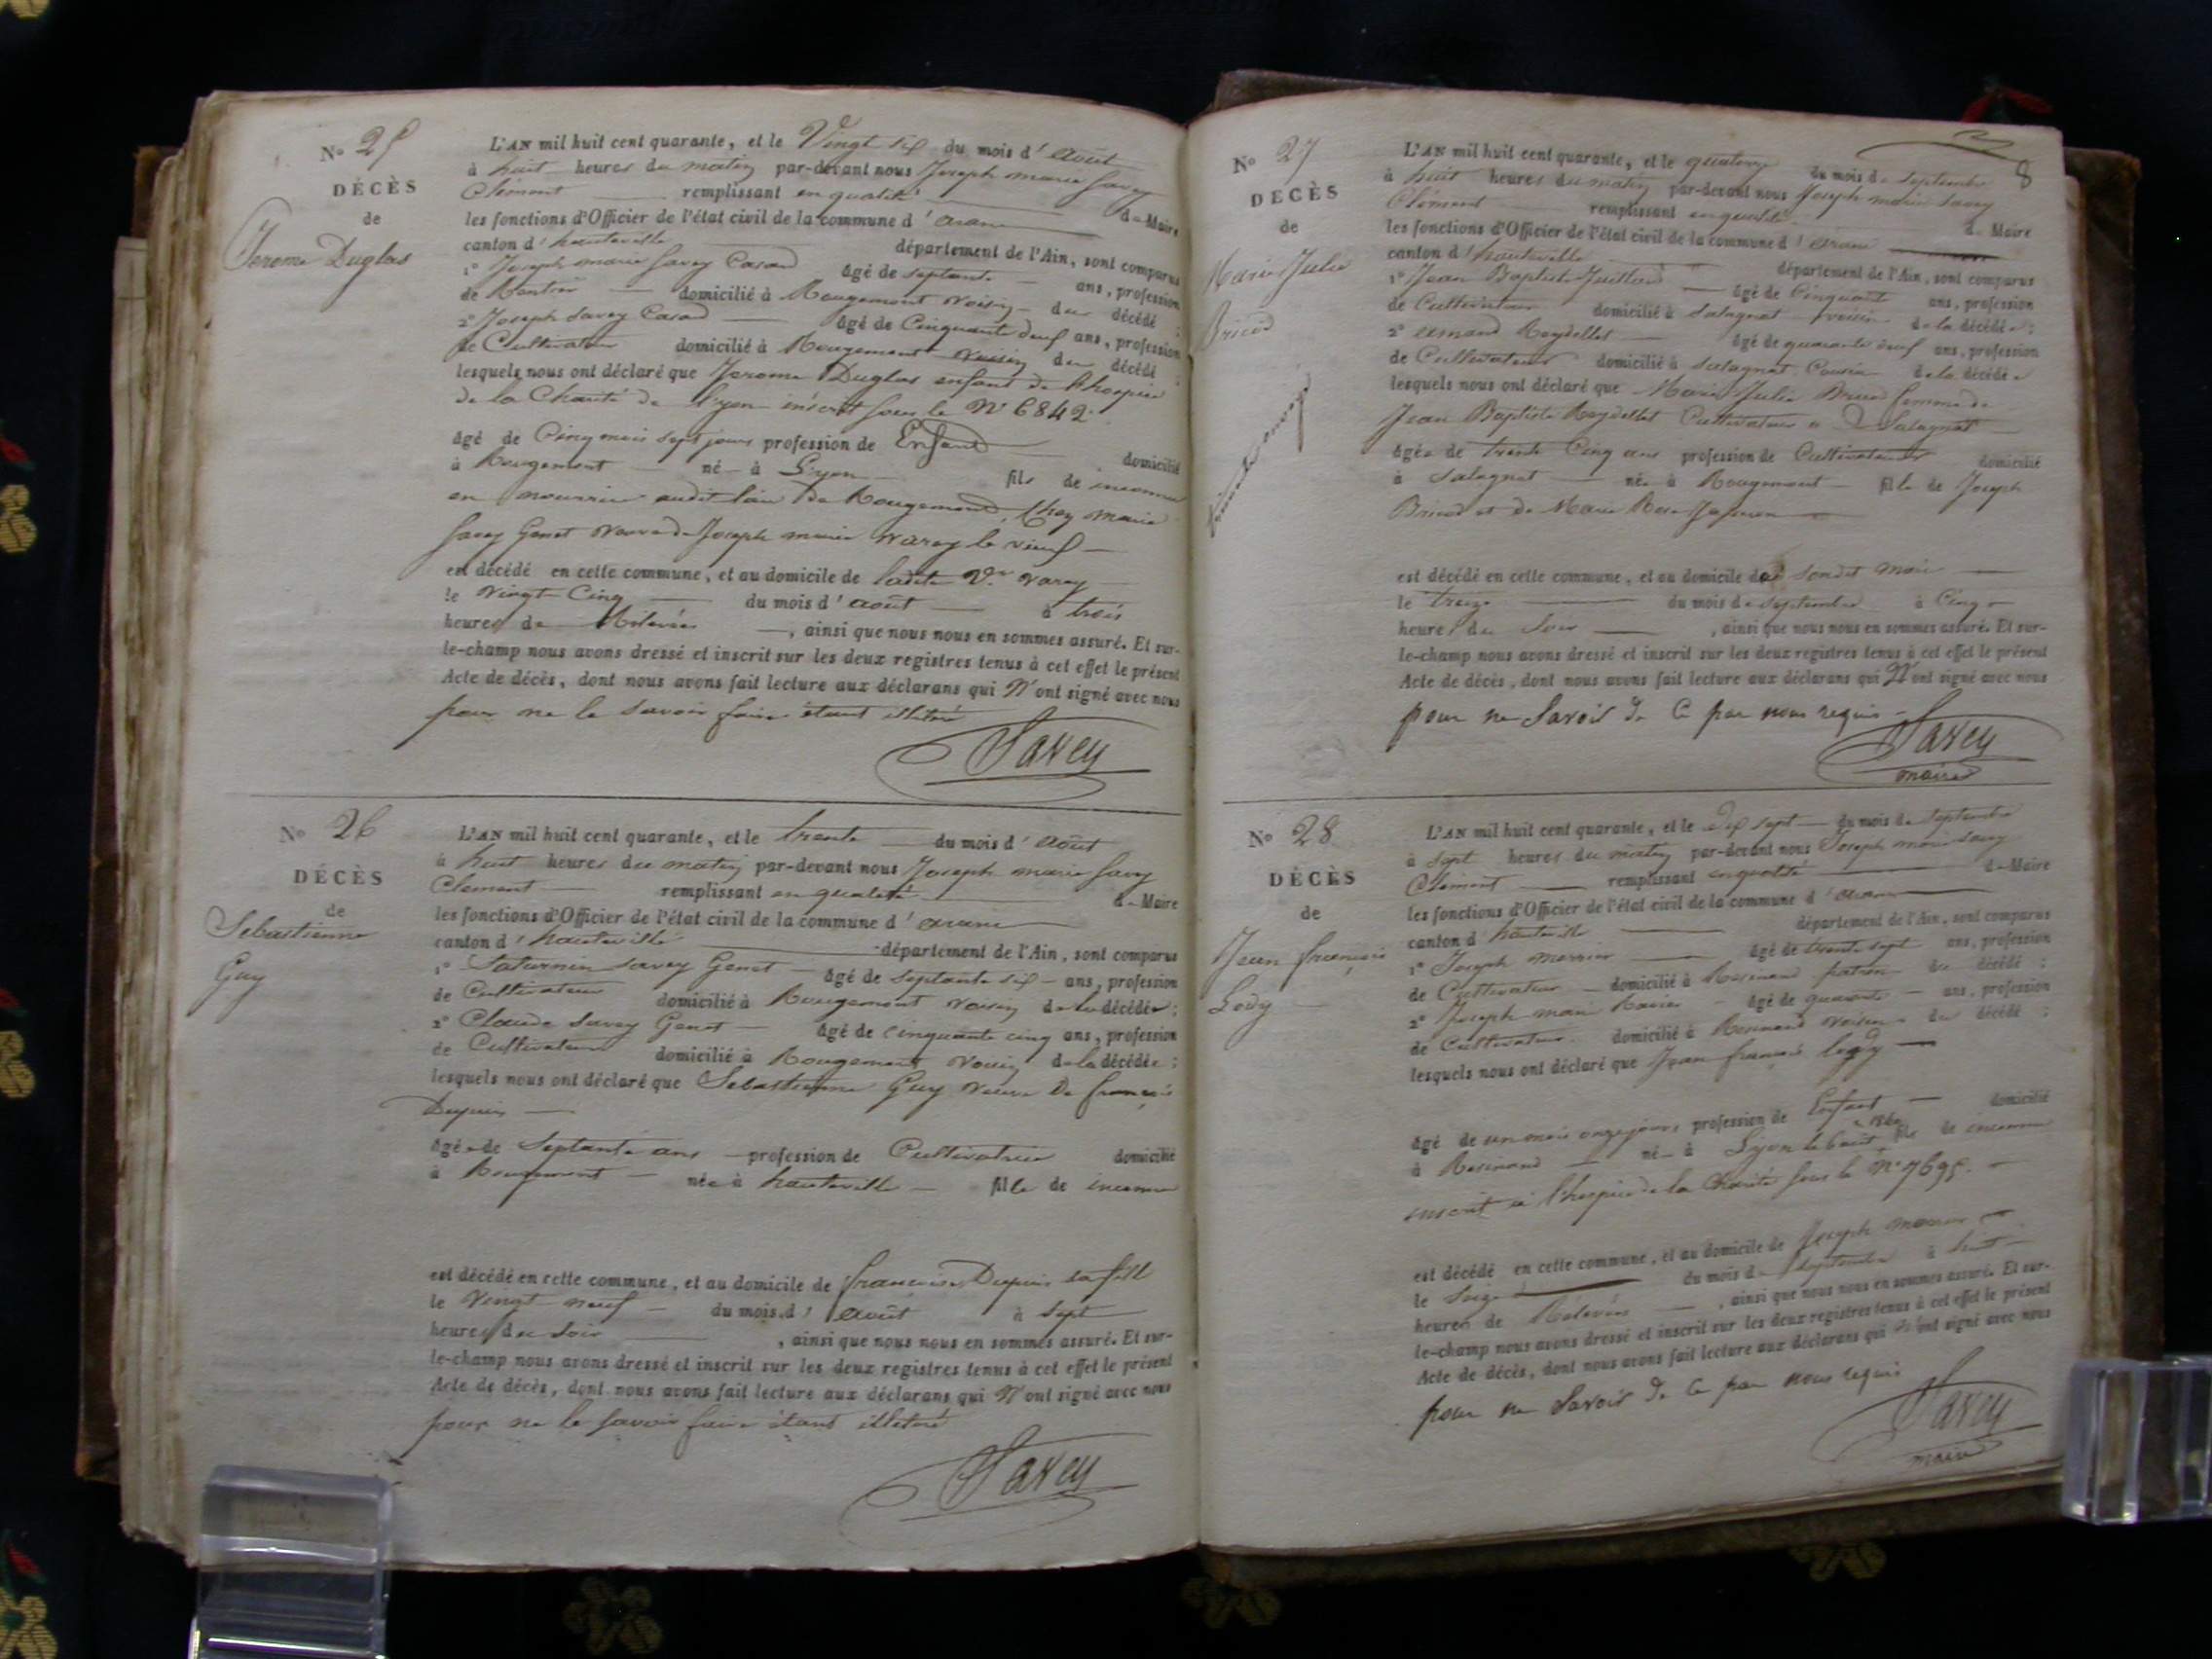 No 25
DÉCÈS
de
Jerome Duglas
L'AN mil huit cent quarante, et le Vingt six du mois d'août
à huit heures du matin par-devant nous Joseph marie Savey
Clément remplissant en qualité de Maire
les fonctions d'Officier de l'état civil de la commune d'aranc
canton d'hauteville département de l'Ain, sont comparus
1° Joseph marie Savey Casard âgé de septante ans, profession
de Rentier domicilié à Rougemont voisin du décédé ;
2° Joseph Savey Casard âgé de Cinquante deux ans, profession
de Cultivateur domicilié à Rougemont voisin du décédé ;
lesquels nous ont déclaré que Jerome Duglas enfant de l'hospice
de la Charité de Lyon inscrit sous le N° 6842.
âgé de Cinq mois sept jours profession de Enfant domicilié
à Rougemont né à Lyon fils de inconnu
en nourrice audit lieu De Rougemont, Chez marie
Savey Genet veuve de Joseph marie Varey le vieux
est décédé en cette commune, et au domicile de ladite Ve Varey
le Vingt Cinq du mois d'août à trois
heures de Relevée, ainsi que nous nous en sommes assuré. Et sur-
le-champ nous avons dressé et inscrit sur les deux registres tenus à cet effet le présent
Acte de décès, dont nous avons fait lecture aux déclarans qui N'ont signé avec nous
pour ne le savoir faire étant illitéré
Savey
No 26
DÉCÈS
de
Sebastienne
Guy
L'AN mil huit cent quarante, et le trente du mois d'août
à huit heures du matin par-devant nous Joseph marie Savey
Clement remplissant en qualité de Maire
les fonctions d'Officier de l'état civil de la commune d'aranc
canton d'hauteville département de l'Ain, sont comparus
1° Saturnin Savey Genet âgé de septante six ans, profession
de Cultivateur domicilié à Rougemont voisin de la décédée ;
2° Claude Savey Genet âgé de cinquante cinq ans, profession
de Cultivateur domicilié à Rougemont voisin de la décédée ;
lesquels nous ont déclaré que Sebastienne Guy veuve De françois
Dupuis
âgée de Septante ans profession de Cultivatrice domicilié
à Rougemont née à hauteville fille de inconnu
est décédé en cette commune, et au domicile de françoise Dupuis sa fille
le Vingt neuf du mois d'août à sept
heures du soir, ainsi que nous nous en sommes assuré. Et sur-
le-champ nous avons dressé et inscrit sur les deux registres tenus à cet effet le présent
Acte de décès, dont nous avons fait lecture aux déclarans qui N'ont signé avec nous
pour ne le savoir faire étant illitéré
Savey
8
No 27
DÉCÈS
de
Marie Julie
Bricod
L'AN mil huit cent quarante, et le quatorze du mois de Septembre
à huit heures du matin par-devant nous Joseph marie Savey
Clément remplissant en qualité de Maire
les fonctions d'Officier de l'état civil de la commune d'aranc
canton d'hauteville département de l'Ain, sont comparus
1° Jean Baptiste Juilland âgé de Cinquante ans, profession
de Cultivateur domicilié à Salagnat voisin de la décédée ;
2° Reydellet âgé de quarante deux ans, profession
de Cultivateur domicilié à Salagnat Cousin de la décédée
lesquels nous ont déclaré que Marie Julie Bricod femme de
Jean Baptiste Reydellet Cultivateur Salagnat
âgée de trente Cinq ans profession de Cultivateur domicilié
à Salagnat née à Rougemont fille de Joseph
Bricod et de Marie Rose
est décédé en cette commune, et au domicile de sondit mari
le treize du mois de septembre à Cinq
heures du Soir, ainsi que nous nous en sommes assuré. Et sur-
le-champ nous avons dressé et inscrit sur les deux registres tenus à cet effet le présent
Acte de décès, dont nous avons fait lecture aux déclarans qui N'ont signé avec nous
pour ne Savoir De Ce par nous requis
Savey
maire
No 28
DÉCÈS
de
Jean françois
Lody
L'AN mil huit cent quarante, et le Dix sept du mois de Septembre
à sept heures du matin par-devant nous Joseph marie Savey
Clément remplissant en qualité de Maire
les fonctions d'Officier de l'état civil de la commune d'aranc
canton d'hauteville département de l'Ain, sont comparus
1° Joseph âgé de trente sept ans, profession
de Cultivateur domicilié à Resinand patron du décédé ;
2° Joseph marie Ravier âgé de quarante ans, profession
de Cultivateur domicilié à Resinand voisin du décédé ;
lesquels nous ont déclaré que Jean françois
âgé de un mois onze jours profession de Enfant domicilié
à Resinand né à Lyon le août 1840 fils de inconnu
inscrit à l'hospice de la Charité sous le N° 7695.
est décédé en cette commune, et au domicile de Joseph
le Seize du mois de Septembre à huit
heures de Relevée, ainsi que nous nous en sommes assuré. Et sur-
le-champ nous avons dressé et inscrit sur les deux registres tenus à cet effet le présent
Acte de décès, dont nous avons fait lecture aux déclarans qui N'ont signé avec nous
pour ne Savoir De Ce par nous requis
Savey
maire